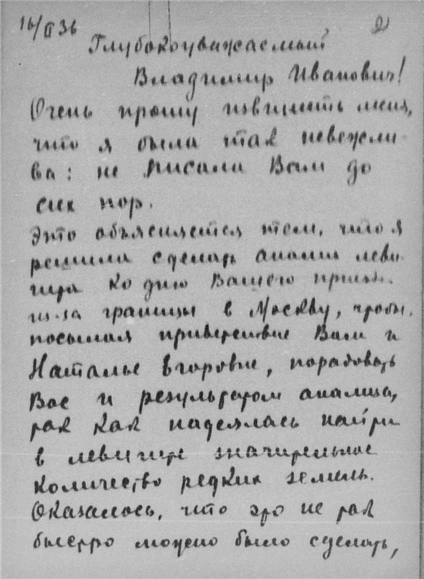 16/II 36
2)
Глубокоуважаемый
Владимир Иванович!
Очень прошу извинить меня,
что я была так невежли-
ва: не писала Вам до
сих пор.
Это объясняется тем, что я
решила сделать анализ леви-
гита ко дню Вашего приезд.
из-за границы в Москву, чтобы,
посылая приветствие Вам и
Наталье Егоровне, порадовать
Вас и результатом анализа,
так как надеялась найти
в левигите значительное
количество редких земель.
Оказалось, что это не так
быстро можно было сделать,